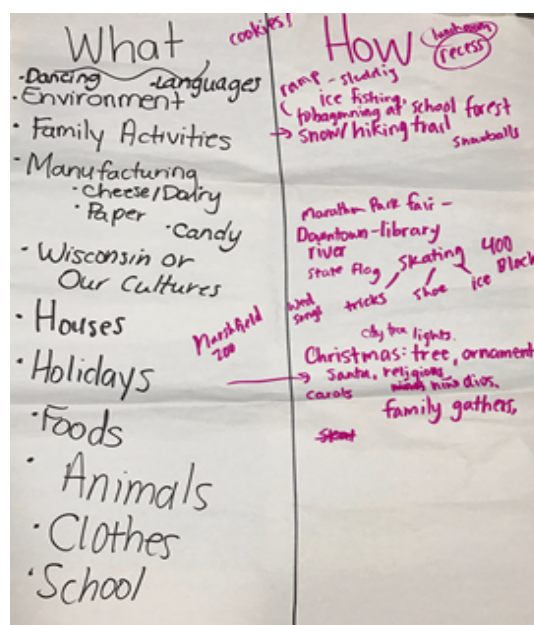 What
·Dancing ·Languages
·Environment
· Family Activities
· Manufacturing
· Cheese/Dairy
· Paper
· Candy
· Wisconsin or
Our Cultures
· Houses
· Holidays
· Foods
· Animals
· Clothes
· School
cookies!
Marshfield
zoo
How
recess
ramp - sledding
ice fishing,
tobagonning at school forest
→ snow/hiking trail
snowballs
Marathon Park fair -
Downtown-library
river
State Flag
skating 400
Block
tricks shoe ice
city tree lights.
Christmas: tree, ornament
Santa, religions
niño dios.
carols
family gathers,